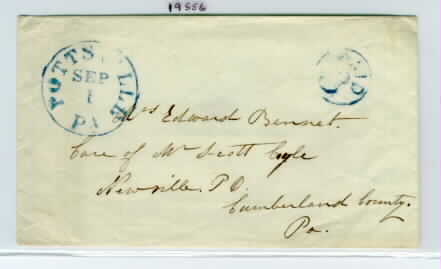 19556
POTTSVILLE
SEP
1
PA
PAID
3
Mrs Edward Bennet.
Care of Mr Scott Coyle
Newville. P.O.
Cumberland County.
Pa.